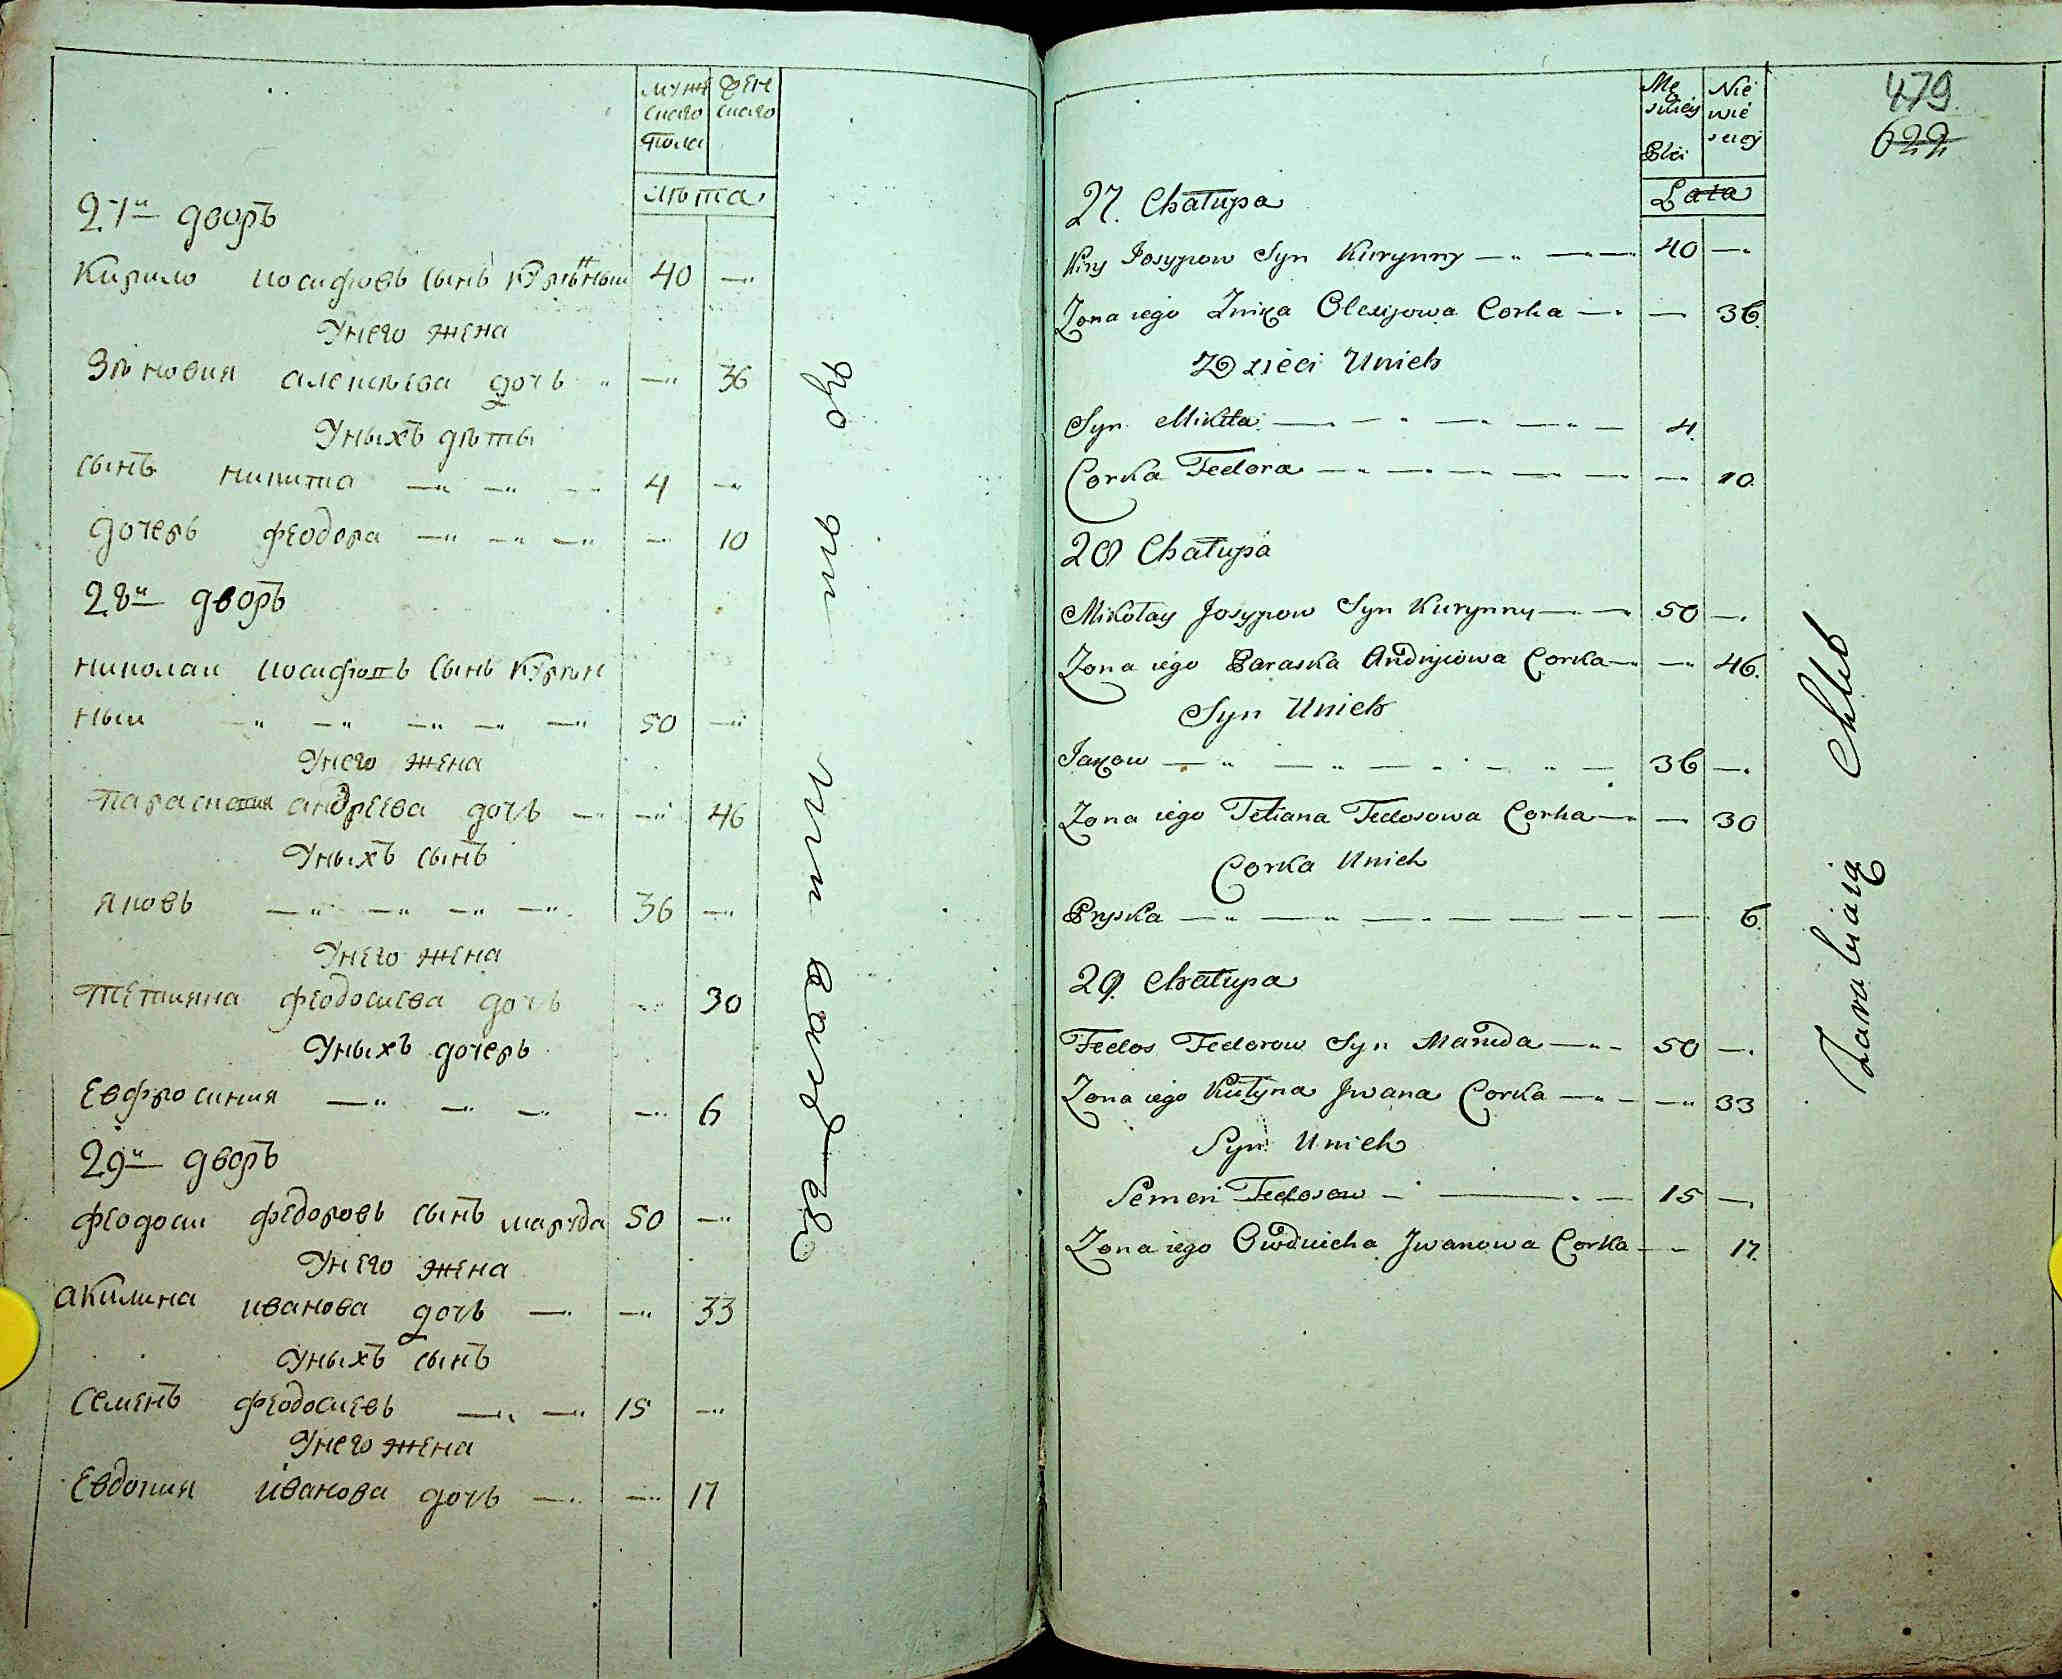 мужскаго пола
женскаго
лѣта
27й дворъ
Кирило Иосифовъ сынъ Курѣнный 40 —
У него жена
Зѣновия Алексѣева дочь — 36
У ныхъ дѣты
сынъ Никита — — — 4 —
дочерь Феодора — — — — 10
28й дворъ
Николай Иосифовъ сынъ Курѣн
ный — — — — — 50 —
У него жена
Параскевия Андреева дочь — — 46
У ныхъ сынъ
Яковъ — — — — 36 —
У него жена
Тетияна Феодосиева дочь — 30
У ныхъ дочерь
Евфросиния — — — — 6
29й дворъ
Феодосий Федоровъ сынъ Маруда 50 —
У него жена
Акилина Иванова дочь — — 33
У ныхъ сынъ
Семенъ Феодосиевъ — — 15 —
У него жена
Евдокия Иванова дочь — — 17
479
622
Męskiey Płci
Niewieściey
Lata
27. Chałupa
Kiry Josypow Syn Kurynny — — 40 —
Zona iego Znika Olexijowa Corka — — 36.
Dzieci Unich
Syn Mikita — — — — — 4.
Corka Fedora — — — — — — 10.
28 Chałupa
Mikołay Josypow Syn Kurynny — — 50 —
Zona iego Paraska Andryiowa Corka — — 46.
Syn Unich
Jakow — — — — — — 36 —
Zona iego Tetiana Fedosowa Corka — — 30
Corka Unich
Pryska — — — — — — — 6.
29. Chałupa
Fedos Fedorow Syn Maruda — — 50 —
Zona iego Kulyna Jwana Corka — — — 33
Syn Unich
Semen Fedosow — — — 15 —
Zona iego Owdiucha Jwanowa Corka — — 17.
Zarabiaią Chleb